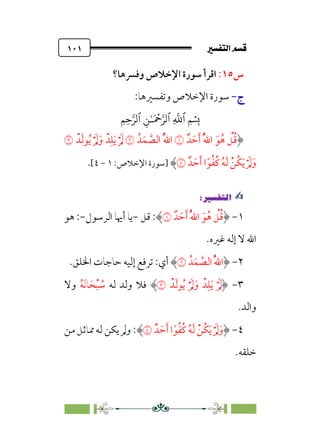 قسم التفسير
١٠١
س١٥: اقرأ سورة الإخلاص وفسرها؟
ج- سورة الإخلاص وتفسيرها:
بِسْمِ ٱللَّهِ ٱلرَّحْمَٰنِ ٱلرَّحِيمِ
﴿قُلْ هُوَ ٱللَّهُ أَحَدٌ ۝ ٱللَّهُ ٱلصَّمَدُ ۝ لَمْ يَلِدْ وَلَمْ يُولَدْ ۝
وَلَمْ يَكُن لَّهُۥ كُفُوًا أَحَدٌ ۝﴾ [سورة الإخلاص: ١ - ٤].
التفسير:
١- ﴿قُلْ هُوَ ٱللَّهُ أَحَدٌ ۝﴾: قل -يا أيها الرسول-: هو
الله لا إله غيره.
٢- ﴿ٱللَّهُ ٱلصَّمَدُ ۝﴾ أي: ترفع إليه حاجات الخلق.
٣- ﴿لَمْ يَلِدْ وَلَمْ يُولَدْ ۝﴾ فلا ولد له سُبْحَانَهُ ولا
والد.
٤- ﴿وَلَمْ يَكُن لَّهُۥ كُفُوًا أَحَدٌ ۝﴾: ولم يكن له مماثل من
خلقه.